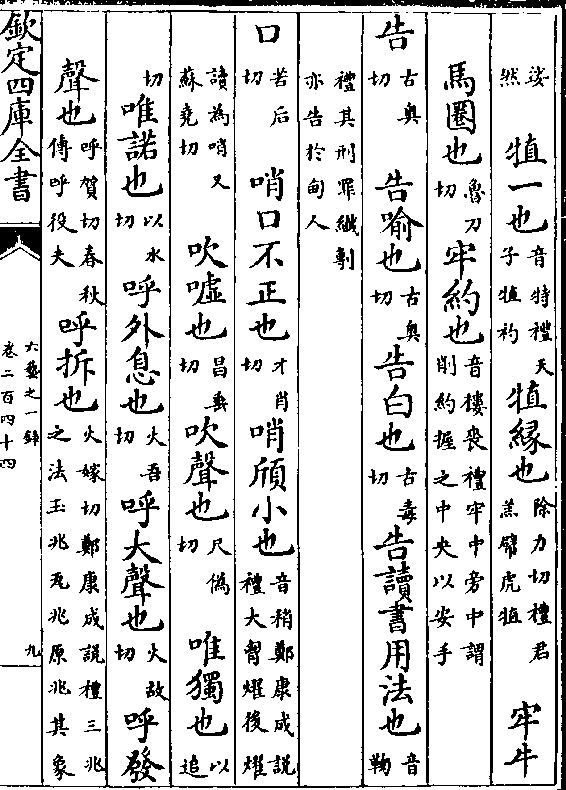 娑然犆一也音特禮天子犆礿犆緣也除力切禮君羔幦虎犆牢牛
馬圈也魯刀切牢約也音樓喪禮牢中旁中謂削約握之中央以安手
告古奥切告喻也古奥切告白也古毒切告讀書用法也音鞫
禮其刑罪纎剸亦告於甸人
口苦后切哨口不正也才肖切哨頎小也音稍鄭康成説禮大胷燿後燿
讀為哨又蘇堯切吹噓也昌垂切吹聲也尺偽切唯獨也以追
切唯諾也以水切呼外息也火吾切呼大聲也火故切呼發
聲也呼賀切春秋傳呼役夫呼拆也火嫁切鄭康成説禮三兆之法玉兆瓦兆原兆其象
欽定四庫全書
六藝之一錄
卷二百四十四
九